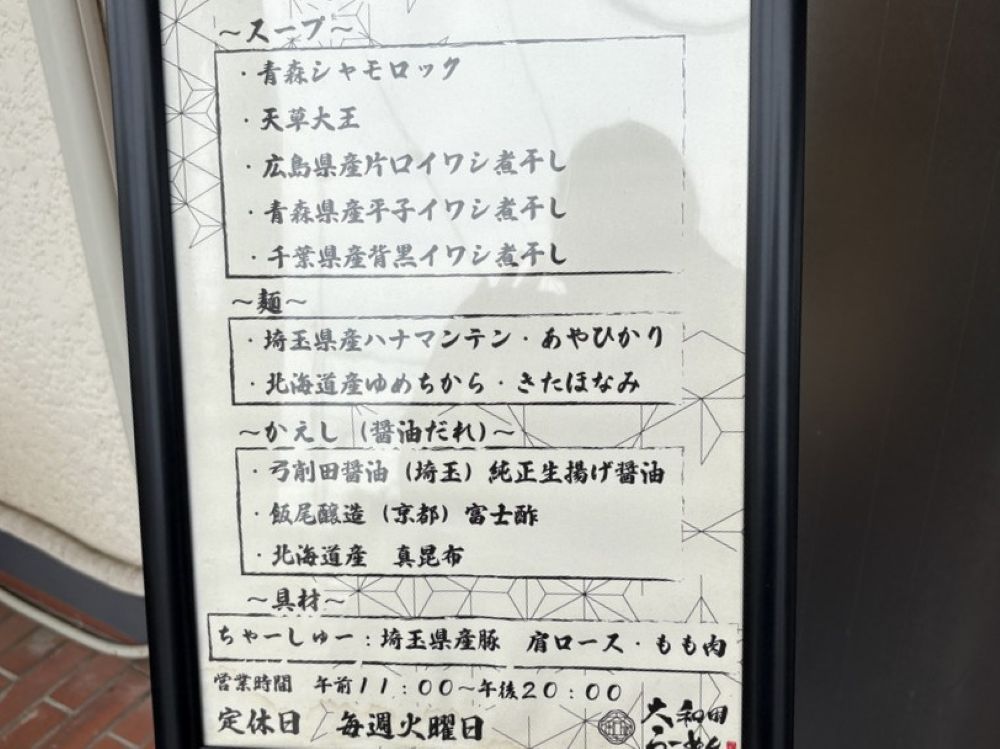 ～スープ～
・青森シャモロック
・天草大王
・広島県産片口イワシ煮干し
・青森県産平子イワシ煮干し
・千葉県産背黒イワシ煮干し
～麺～
・埼玉県産ハナマンテン・あやひかり
・北海道産ゆめちから・きたほなみ
～かえし（醤油だれ）～
・弓削田醤油（埼玉）純正生揚げ醤油
・飯尾醸造（京都）富士酢
・北海道産　真昆布
～具材～
ちゃーしゅー：埼玉県産豚　肩ロース・もも肉
営業時間　午前11：00～午後20：00
定休日／毎週火曜日
大和田